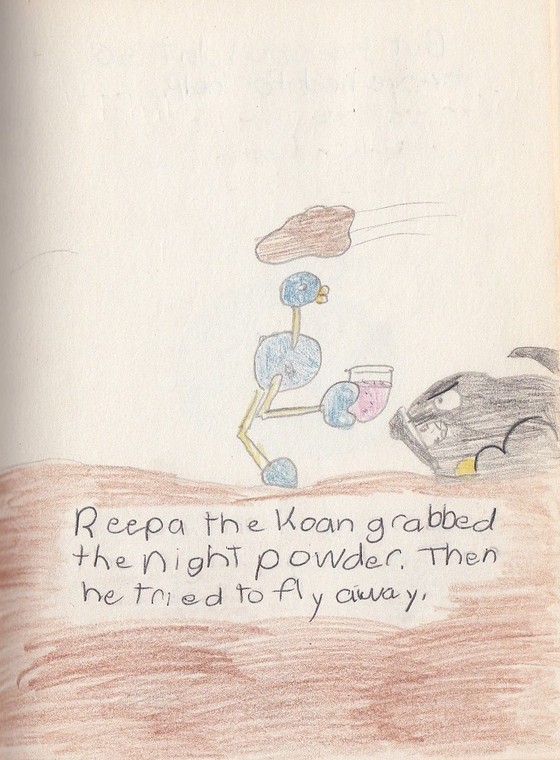 Reepa the Koan grabbed
the night powder. Then
he tried to fly away.